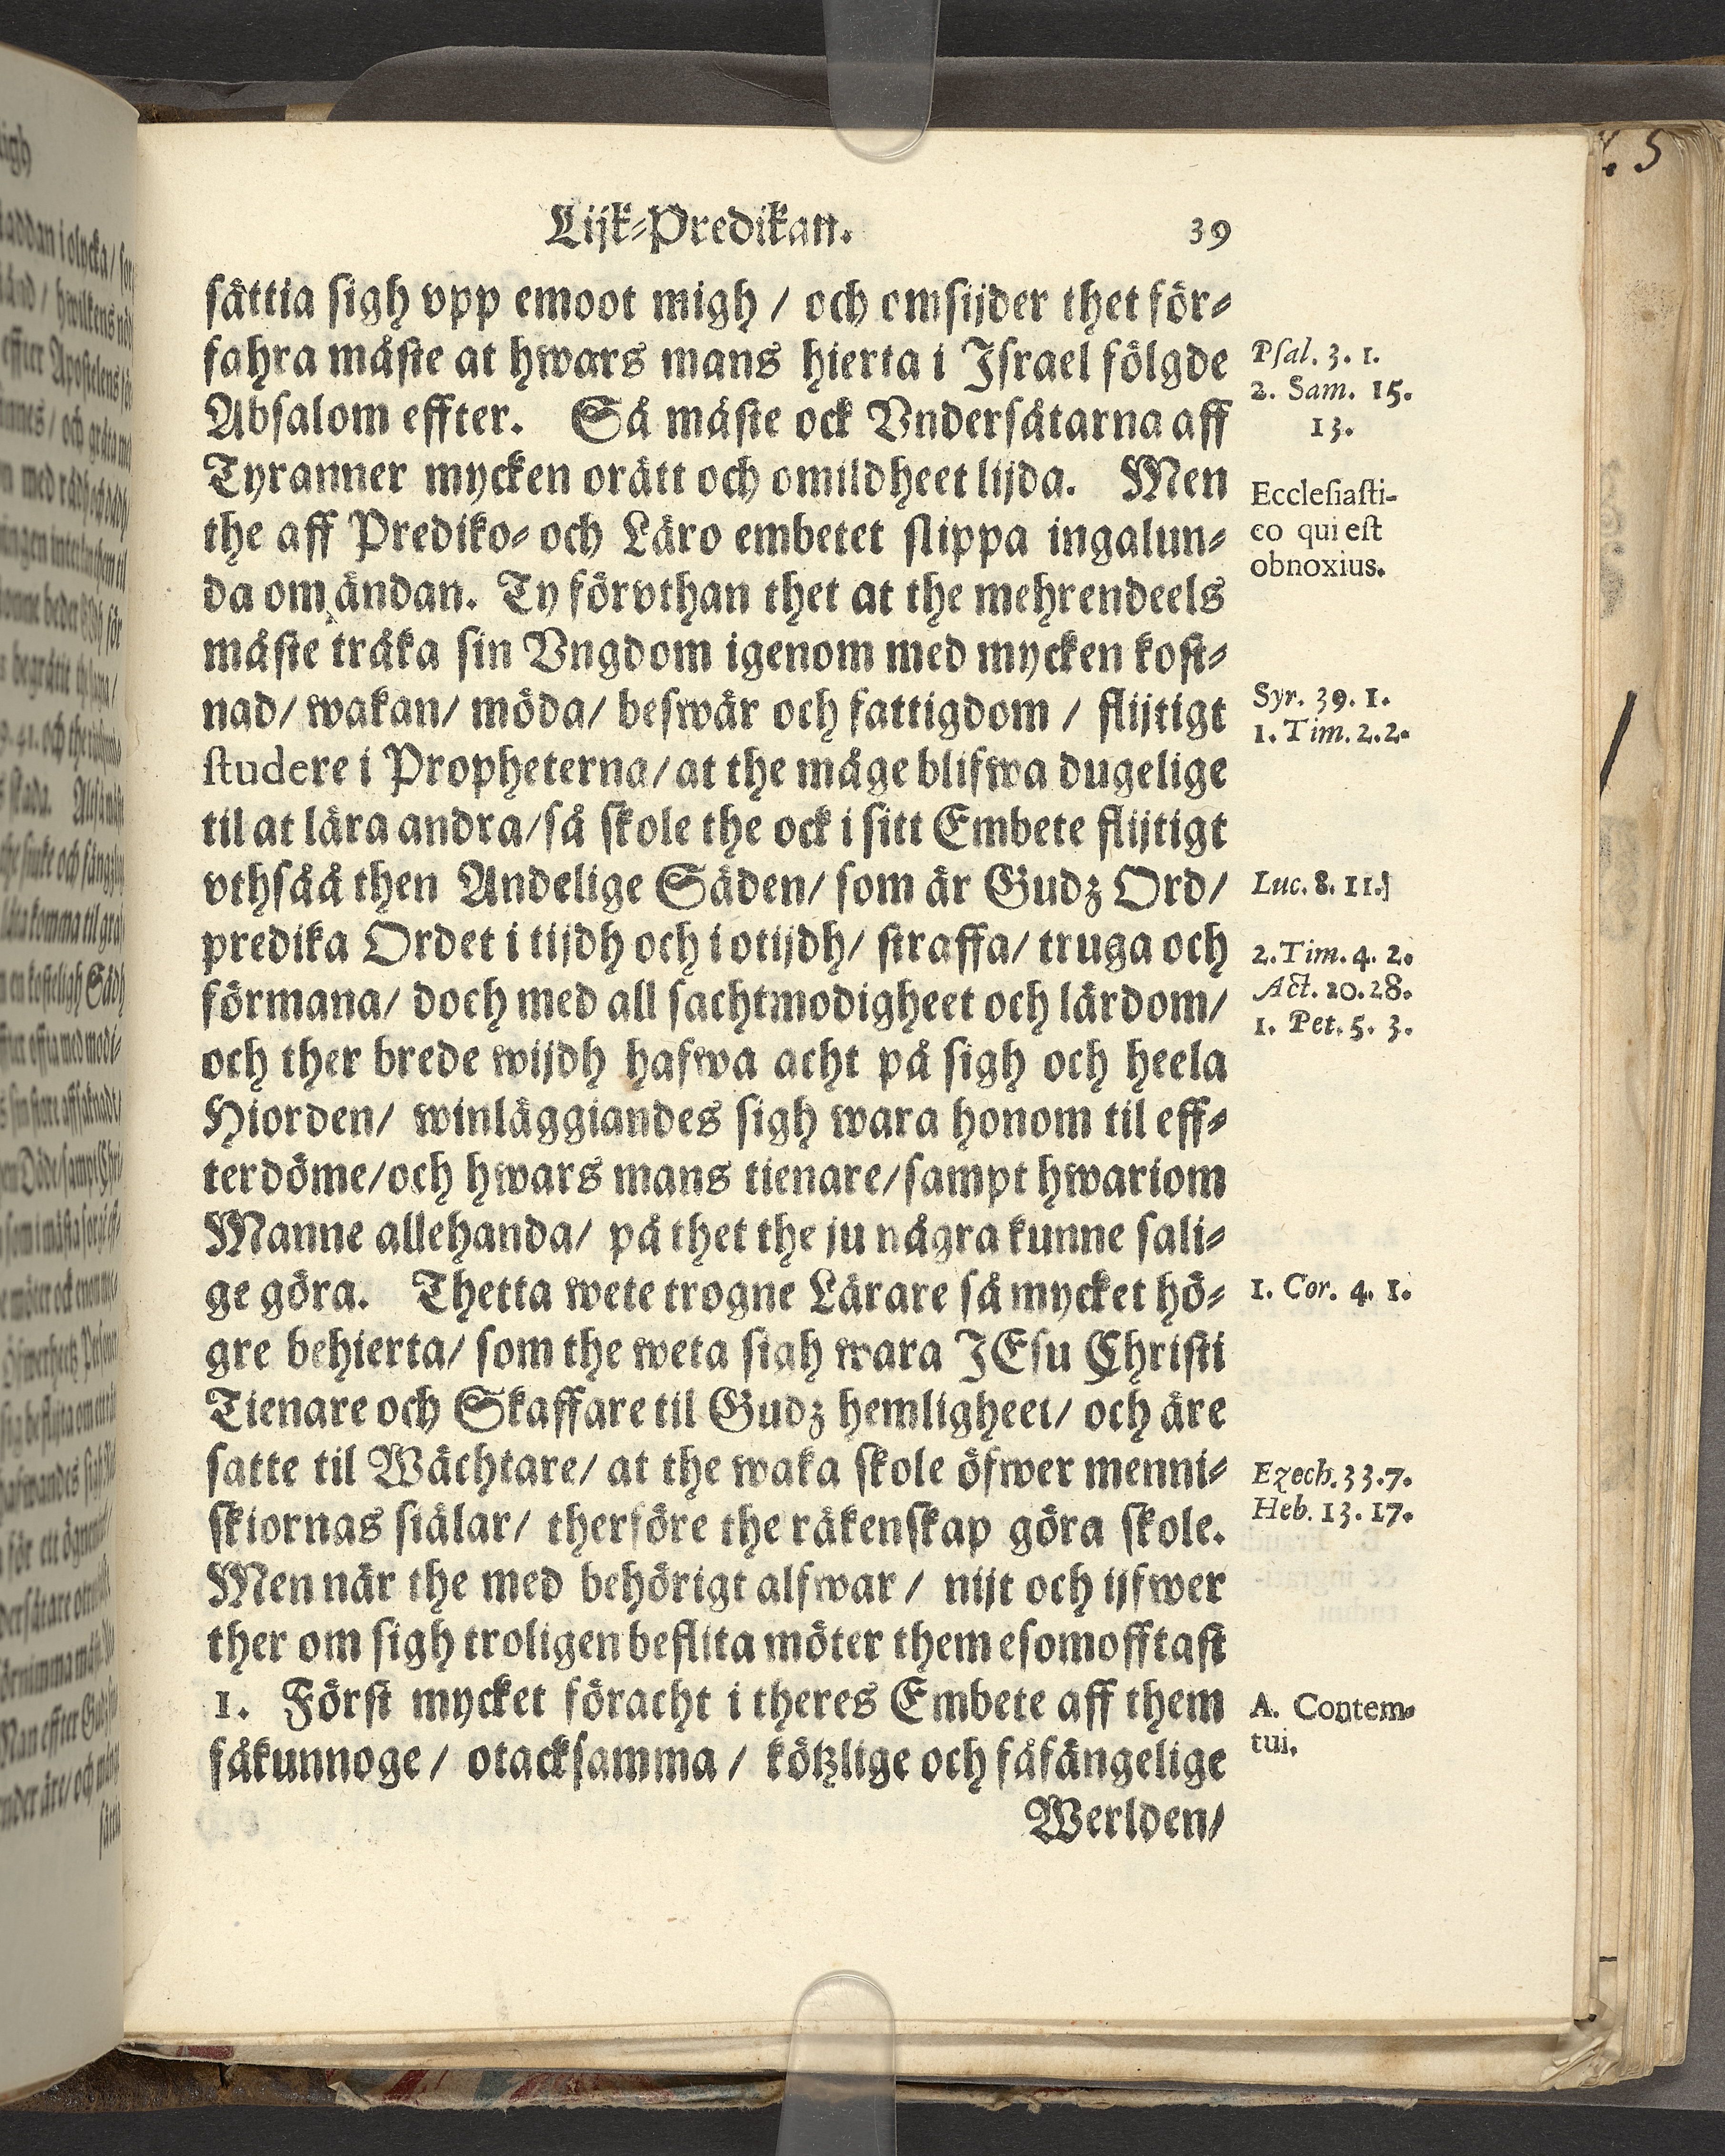 Lijk-Predikan. 39
sättia sigh vpp emoot migh / och omsijder thet för-
fahra måste at hwars mans hierta i Israel fölgde
Absalom effter. Så måste ock Vndersåtarna aff
Tyranner mycken orätt och omildheet lijda. Men
the aff Prediko- och Läro embetet slippa ingalun-
da om ändan. Ty förvthan thet at the mehrendeels
måste tråka sin Vngdom igenom med mycken kost-
nad/ wakan/ möda/ beswär och fattigdom / flijtigt
studere i Propheterna/ at the måge blifwa dugelige
til at lära andra/ så skole the ock i sitt Embete flijtigt
vthsåå then Andelige Säden/ som är Gudz Ord/
predika Ordet i tijdh och i otijdh/ straffa/ truga och
förmana/ doch med all sachtmodigheet och lärdom/
och ther brede wijdh hafwa acht på sigh och heela
Hiorden/ winläggiandes sigh wara honom til eff-
terdöme/ och hwars mans tienare/ sampt hwariom
Manne allehanda/ på thet the ju några kunne sali-
ge göra. Thetta wete trogne Lärare så mycket hö-
gre behierta/ som the weta sigh wara JEsu Christi
Tienare och Skaffare til Gudz hemligheet/ och äre
satte til Wächtare/ at the waka skole öfwer menni-
skiornas siälar/ therföre the räkenskap göra skole.
Men när the med behörigt alfwar / nijt och ijfwer
ther om sigh troligen beflita möter them esomofftast
1. Först mycket föracht i theres Embete aff them
fåkunnoge / otacksamma / kötzlige och fåfängelige
Werlden/
Psal. 3. 1.
2. Sam. 15.
13.
Ecclesiasti-
co qui est
obnoxius.
Syr. 39. 1.
1. Tim. 2. 2.
Luc. 8. 11.
2. Tim. 4. 2.
Act. 20. 28.
1. Pet. 5. 3.
1. Cor. 4. 1.
Ezech. 33. 7.
Heb. 13. 17.
A. Contem-
tui.